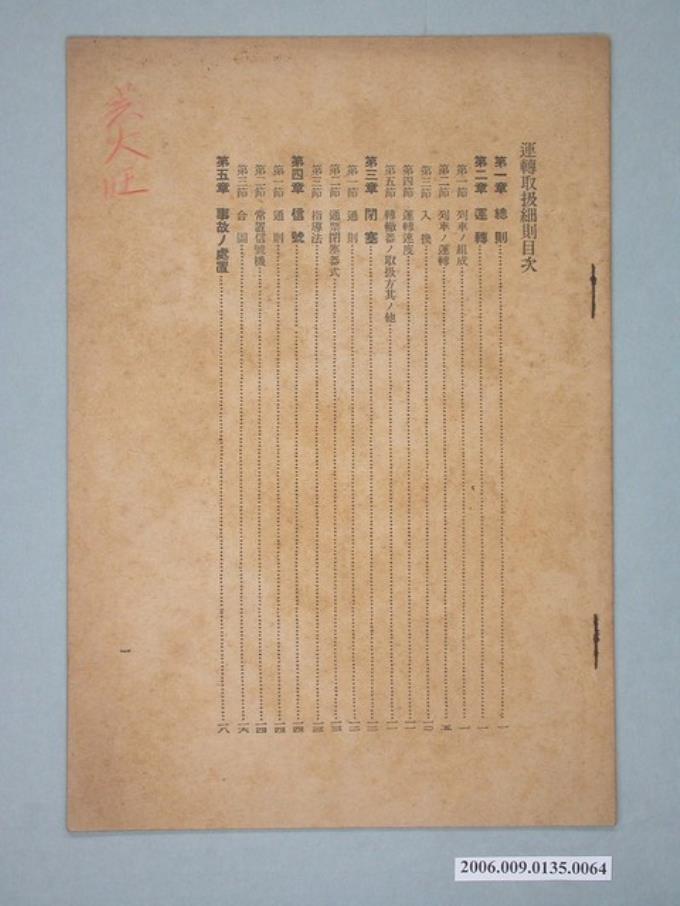 運轉取扱細則目次
第一章 總則 一
第二章 運轉 一
第一節 列車ノ組成 一
第二節 列車ノ運轉 五
第三節 入換 一〇
第四節 運轉速度 一一
第五節 轉轍器ノ取扱方其ノ他 一一
第三章 閉塞 一二
第一節 通則 一二
第二節 通票閉塞器式 一三
第三節 指導法 一三
第四章 信號 一四
第一節 通則 一四
第二節 常置信號機 一四
第三節 合圖 一六
第五章 事故ノ處置 一八
一
大旺
2006.009.0135.0064